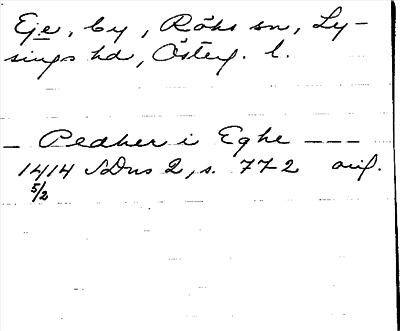 Eje, by, Röks sn, Ly-
sings hd, Österg. l.
— Pedher i Eghe – – –
1414 SDns 2, s. 772 orig.
5/2